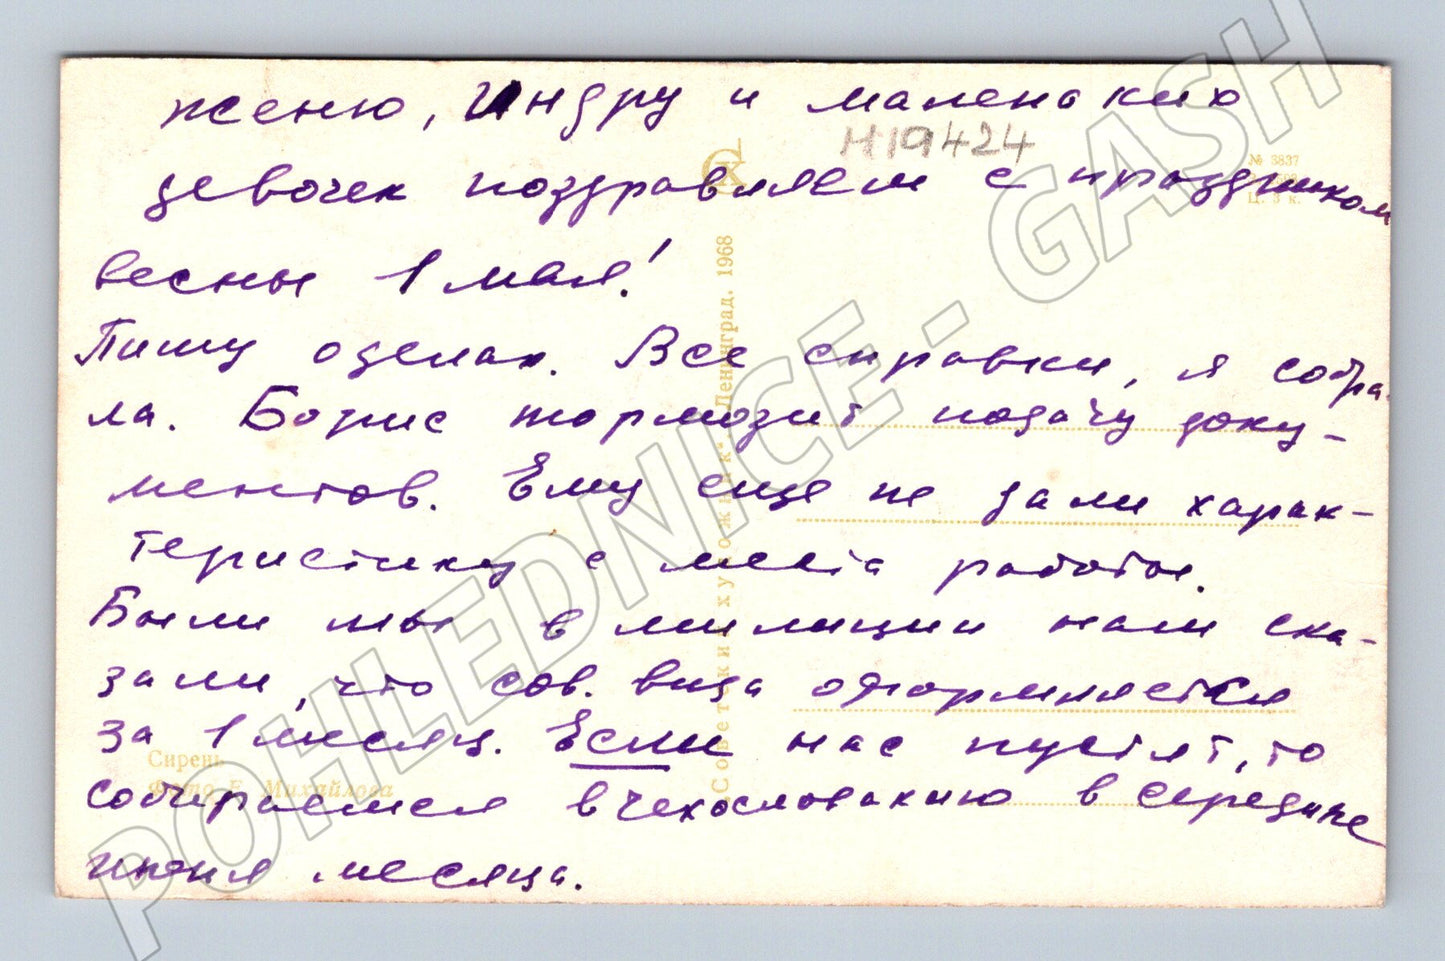 женю, Индру и маленаких
H19424
девочек поздравляем с праздником
№ 3837
Ц. 3 к.
весны 1 мая!
Пишу о делах. Все справки, я собра-
ла. Борис тормозит подачу доку-
ментов. Ему еще не дали харак-
теристику с места работы.
Были мы в милиции нам ска-
зали, что сов. виза оформляется
за 1 месяц. Если нас пустят, то
собираемся в Чехословакию в середине
июня месяца.
Сирень
Фото Е. Михайлова
Советский художник. Ленинград. 1968
POHLEDNICE - GASH